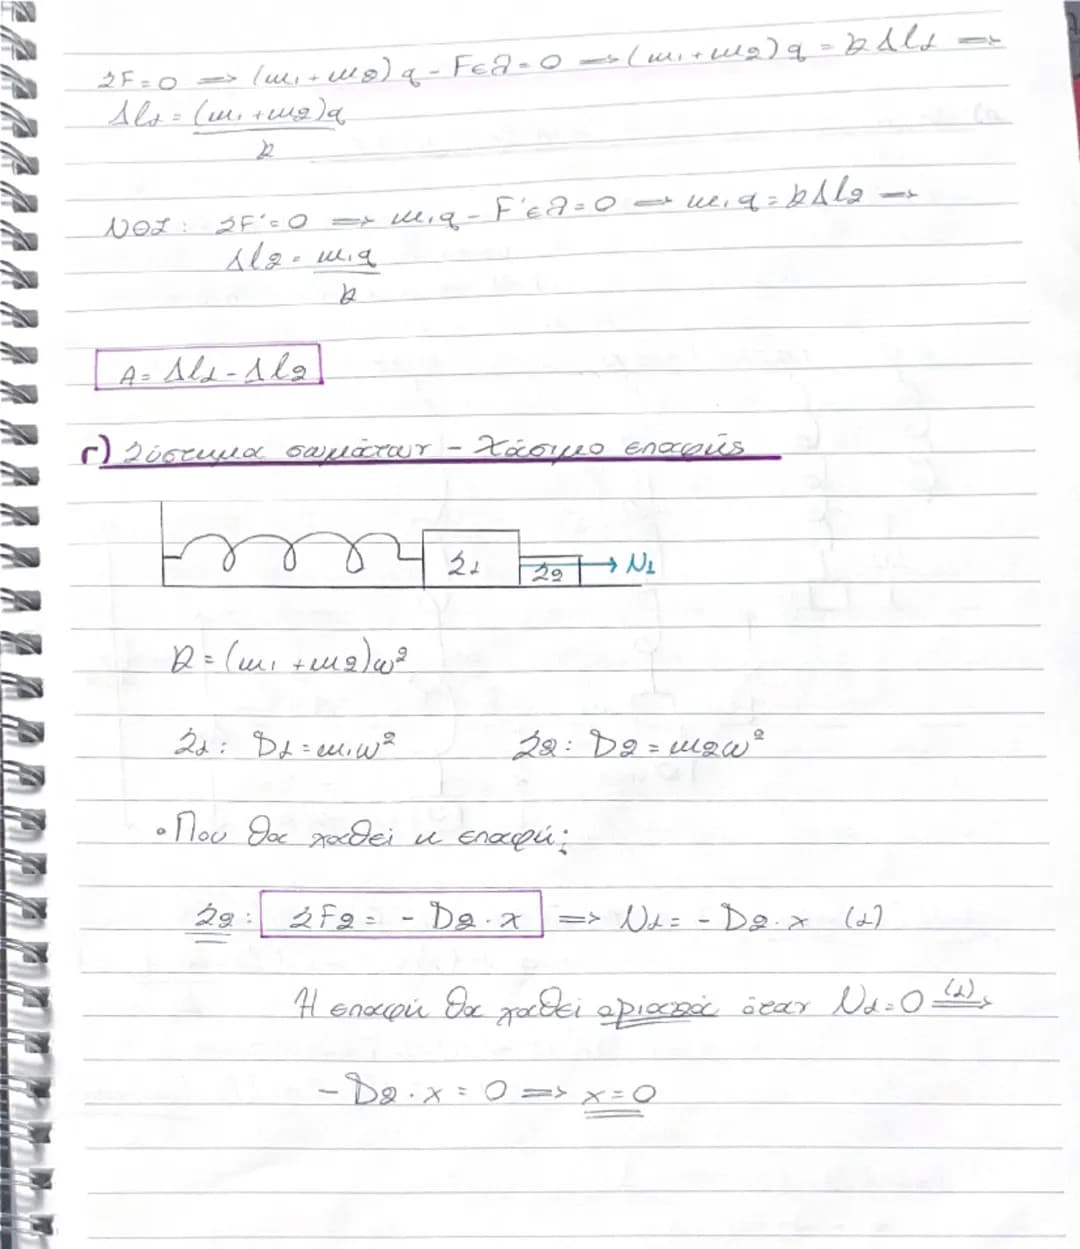 ΣF=0 => (m₁+m₂)g - Fελ=0 => (m₁+m₂)g = kΔl₁ =>
Δl₁ = (m₁+m₂)g
k
ΝΘΙ: ΣF'=0 => m₁g - F'ελ=0 => m₁g = kΔl₂ =>
Δl₂ = m₁g
k
A = Δl₁ - Δl₂
Γ) Σύστημα σωμάτων - Χάσιμο επαφής
Σ₁ Σ₂ N₁
k = (m₁+m₂)ω²
Σ₁: D₁ = m₁ω² Σ₂: D₂ = m₂ω²
• Που θα χαθεί η επαφή;
Σ₂: ΣF₂ = - D₂·x => N₁ = - D₂·x (1)
Η επαφή θα χαθεί οριακά όταν N₁=0 (1)=>
-D₂·x = 0 => x=0